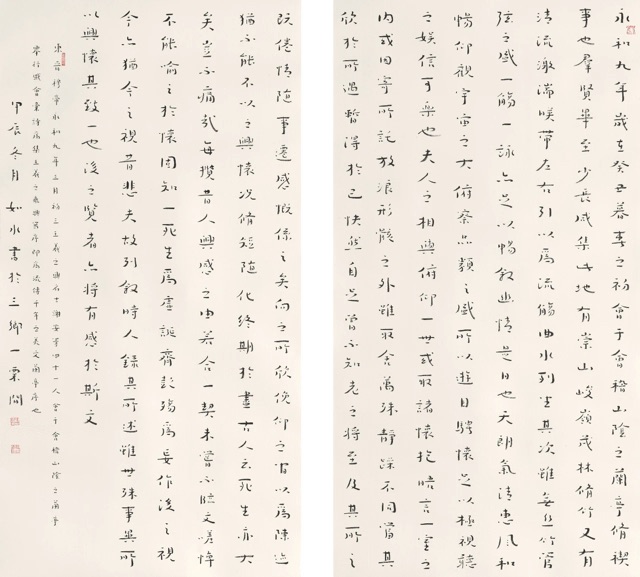 永和九年歲在癸丑暮春之初會于會稽山陰之蘭亭脩禊
事也羣賢畢至少長咸集此地有崇山峻嶺茂林脩竹又有
清流激湍暎帶左右引以爲流觴曲水列坐其次雖無絲竹管
弦之盛一觴一詠亦足以暢敘幽情是日也天朗氣清惠風和
暢仰觀宇宙之大俯察品類之盛所以遊目騁懷足以極視聽
之娛信可樂也夫人之相與俯仰一世或取諸懷抱晤言一室之
內或因寄所託放浪形骸之外雖取舍萬殊靜躁不同當其
欣於所遇暫得於己快然自足曾不知老之將至及其所之
既倦情隨事遷感慨係之矣向之所欣俛仰之間以爲陳迹
猶不能不以之興懷況脩短隨化終期於盡古人云死生亦大
矣豈不痛哉每攬昔人興感之由若合一契未嘗不臨文嗟悼
不能喻之於懷固知一死生爲虛誕齊彭殤爲妄作後之視
今亦猶今之視昔悲夫故列敘時人錄其所述雖世殊事異所
以興懷其致一也後之覽者亦將有感於斯文
東晉穆帝永和九年三月初三王羲之與名士謝安等四十一人會于會稽山陰之蘭亭
舉行會彙詩爲集王羲之爲寫序即爲流傳千年之美文蘭亭序也
甲辰冬月如水書於三鄉一粟閣